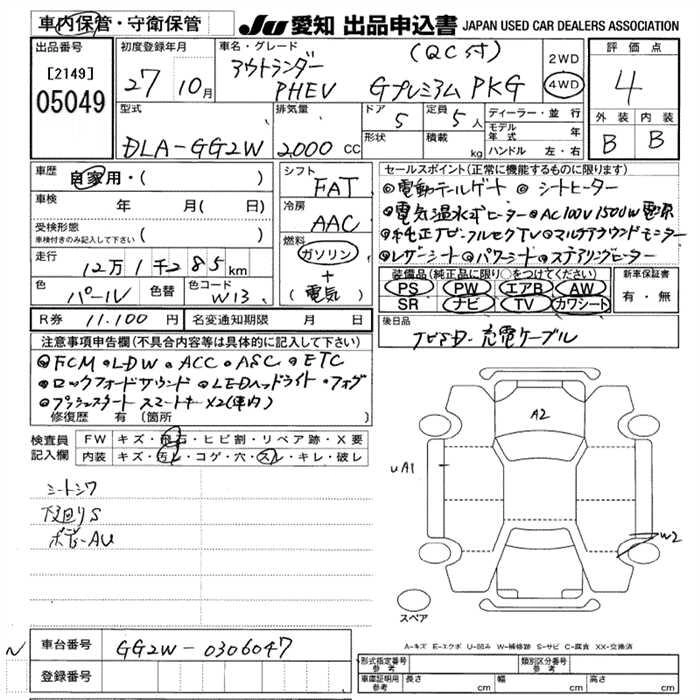 車内保管・守衛保管
JU 愛知 出品申込書 JAPAN USED CAR DEALERS ASSOCIATION
出品番号
[2149]
05049
初度登録年月
27 10月
車名・グレード
(QC付)
アウトランダー
PHEV GプレミアムPKG
2WD
4WD
評価点
4
外装 内装
B B
型式
DLA-GG2W
排気量
2,000 CC
ドア
5
定員
5人
形状
積載
kg
ディーラー・並行
モデル年式 年
ハンドル 左・右
車歴
自家用・( )
車検
年 月( 日)
受検形態
車検付きのみ記入して下さい
( )
走行
12万1千285km
色
パール
色替
色コード
W13
シフト
FAT
冷房
AAC
燃料
ガソリン
+
(電気)
R券 11.100円
名変通知期限 月 日
セールスポイント(正常に機能するものに限ります)
◎電動テールゲート ◎シートヒーター
◎電気温水式ヒーター ◎AC100V1500W電源
◎純正ナビ・フルセグTV ◎マルチアラウンドモニター
◎レザーシート ◎パワーシート ◎ステアリングヒーター
装備品(純正品に限り○をつけてください)
PS PW エアB AW
SR ナビ TV カワシート
新車保証書
有・無
後日品
ナビSD・充電ケーブル
注意事項申告欄(不具合内容等は具体的に記入して下さい)
◎FCM ◎LDW ◎ACC ◎ASC ◎ETC
◎ロックフォードサウンド ◎LEDヘッドライト・フォグ
◎プッシュスタート スマートキーX2(車内)
修復歴 有(箇所 )
検査員
記入欄
FW キズ・飛石・ヒビ割・リペア跡・X要
内装 キズ・汚レ・コゲ・穴・スレ・キレ・破レ
シートシワ
下回りS
ボデーAU
A2
uA1
W2
スペア
A-キズ E-エクボ U-凹み W-補修跡 S-サビ C-腐食 XX-交換済
N
車台番号 GG2W-0306047
登録番号
形式指定番号
参考
類別区分番号
参考
車庫証明用
参考
長さ cm 幅 cm 高さ cm